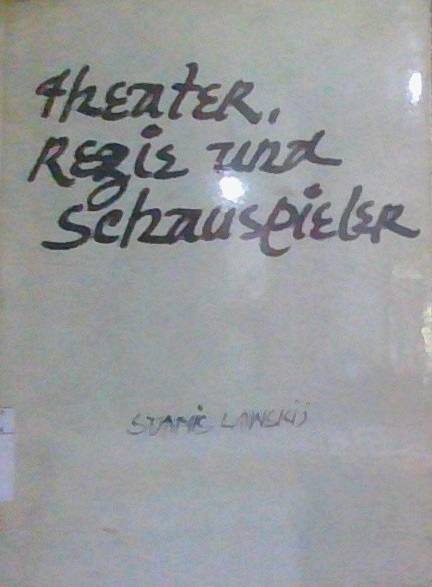 theater.
Regie und
Schauspieler
STANISLAWSKIJ